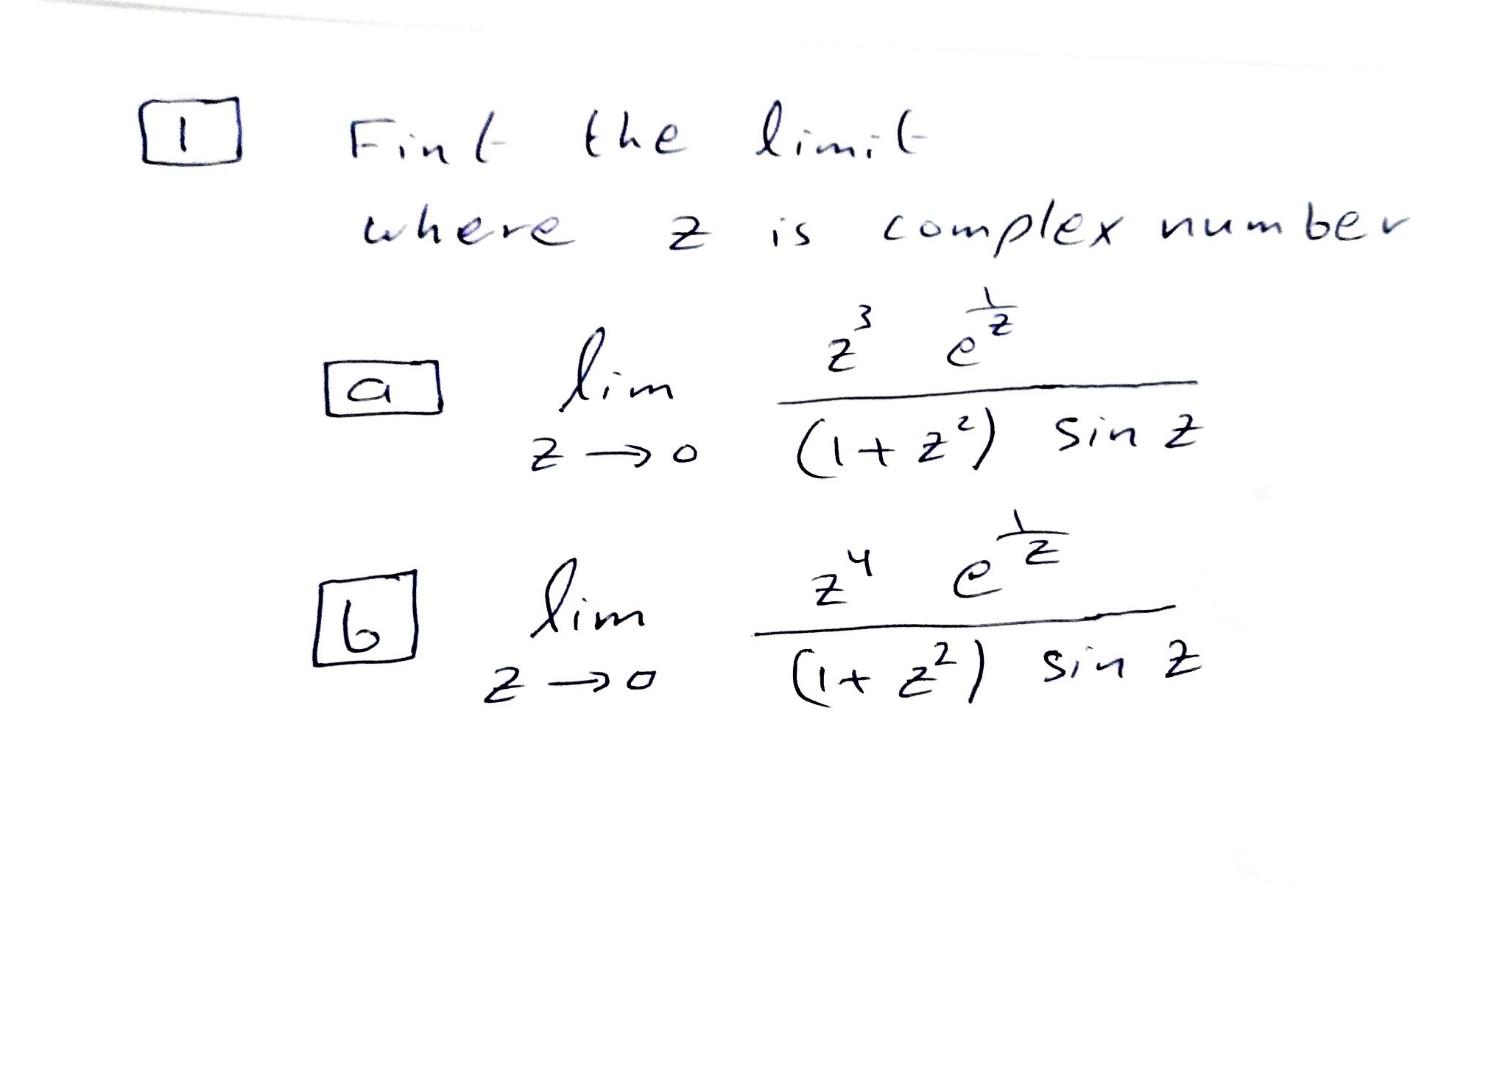 1 Fint the limit
where z is complex number
a lim z→0 z³ e^(1/z) / (1+z²) sin z
b lim z→0 z⁴ e^(1/z) / (1+z²) sin z